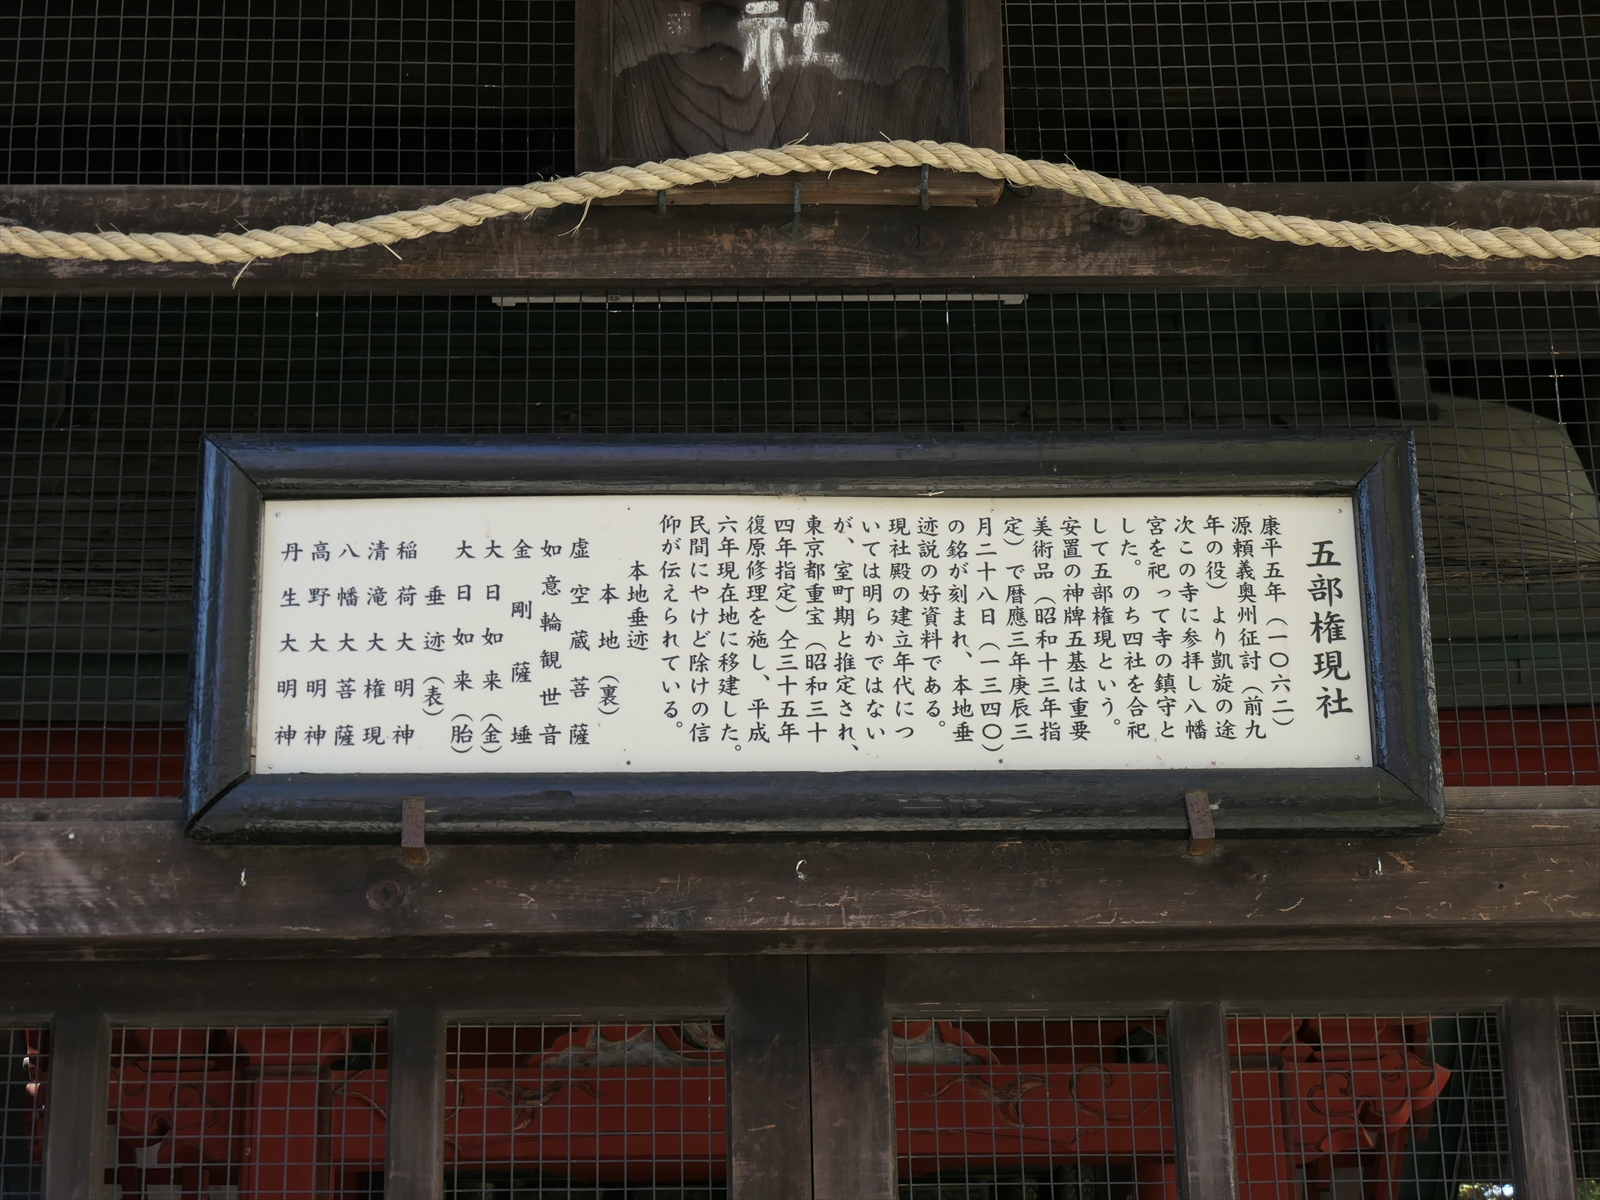 社
五部権現社
康平五年（一〇六二）
源頼義奥州征討（前九
年の役）より凱旋の途
次この寺に参拝し八幡
宮を祀って寺の鎮守と
した。のち四社を合祀
して五部権現という。
安置の神牌五基は重要
美術品（昭和十三年指
定）で暦應三年庚辰三
月二十八日（一三四〇）
の銘が刻まれ、本地垂
迹説の好資料である。
現社殿の建立年代につ
いては明らかではない
が、室町期と推定され、
東京都重宝（昭和三十
四年指定）仝三十五年
復原修理を施し、平成
六年現在地に移建した。
民間にやけど除けの信
仰が伝えられている。
本地垂迹
本地（裏）
虚空蔵菩薩
如意輪観世音
金剛薩埵
大日如来（金）
大日如来（胎）
垂迹（表）
稲荷大明神
清滝大権現
八幡大菩薩
高野大明神
丹生大明神